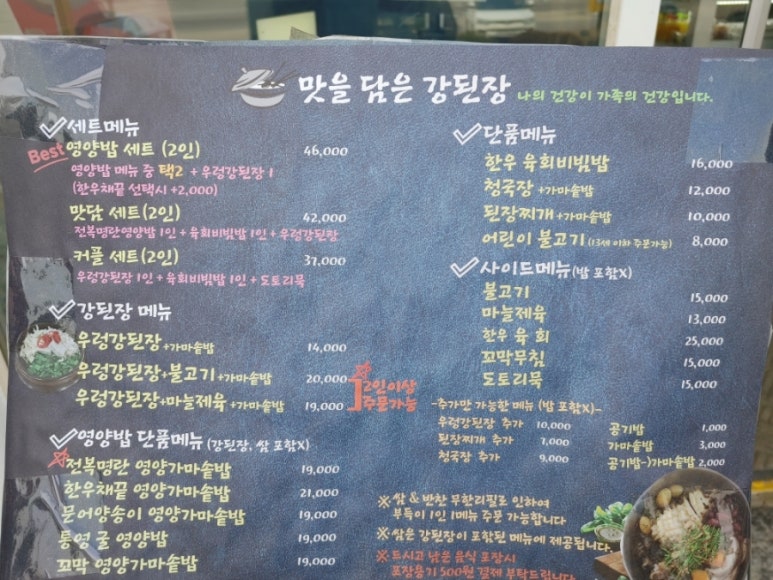 맛을 담은 강된장 나의 건강이 가족의 건강입니다.
세트메뉴
Best 영양밥 세트 (2인) 46,000
영양밥 메뉴 중 택2 + 우렁강된장 1
(한우채끝 선택시 +2,000)
맛담 세트(2인) 42,000
전복명란영양밥 1인 + 육회비빔밥 1인 + 우렁강된장
커플 세트(2인) 37,000
우렁강된장 1인 + 육회비빔밥 1인 + 도토리묵
강된장 메뉴
우렁강된장 +가마솥밥 14,000
우렁강된장+불고기 +가마솥밥 20,000
우렁강된장+마늘제육 +가마솥밥 19,000
2인이상
주문가능
영양밥 단품메뉴 (강된장, 쌈 포함X)
전복명란 영양가마솥밥 19,000
한우채끝 영양가마솥밥 21,000
문어양송이 영양가마솥밥 19,000
통영 굴 영양밥 19,000
꼬막 영양가마솥밥 19,000
단품메뉴
한우 육회비빔밥 16,000
청국장 +가마솥밥 12,000
된장찌개 +가마솥밥 10,000
어린이 불고기 (13세 이하 주문가능) 8,000
사이드메뉴 (밥 포함X)
불고기 15,000
마늘제육 13,000
한우 육 회 25,000
꼬막무침 15,000
도토리묵 15,000
-추가만 가능한 메뉴 (밥 포함X)-
우렁강된장 추가 10,000
된장찌개 추가 7,000
청국장 추가 9,000
공기밥 1,000
가마솥밥 3,000
공기밥->가마솥밥 2,000
※ 쌈 & 반찬 무한리필로 인하여
부득이 1인 1메뉴 주문 가능합니다
※ 쌈은 강된장이 포함된 메뉴에 제공됩니다.
※ 드시고 남은 음식 포장시
포장용기 500원 결제 부탁드립니다